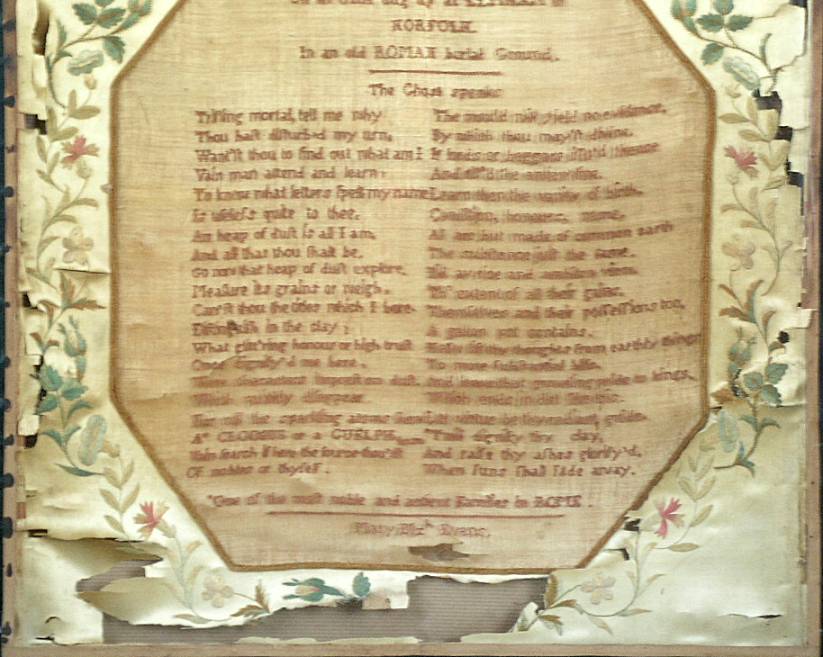 On an
NORFOLK.
In an old ROMAN burial Ground.
The Ghost speaks
Trifling mortal, tell me why
Thou hast disturbed my urn,
Want'st thou to find out what am I
Vain man attend and learn:
To know what letters spell my name
Is useless quite to thee,
An heap of dust is all I am,
And all that thou shalt be.
Go now that heap of dust explore,
Measure its grains or weigh,
Can'st thou the titles which I bore
Distinguish in the clay:
What glitt'ring honour or high trust
Once dignify'd me here,
characters imprest on dust
Which quickly disappear.
Nor will the sparkling atoms
A* CLODIUS or a GUELPH,
Vain search if here the source thou'lt
Of nobles or thyself.
The mould will yield no evidence,
By which thou may'st divine,
If lords or beggars issu'd thence
And
Learn then the vanity of birth,
Condition, honours, name,
All are but made of common earth
The substance just the same.
avarice and ambition
Th' extent of all their gains,
Themselves and their possessions too,
A gallon pot contains.
thoughts from earthly things
To more substantial bliss,
And leave that groveling pride to kings,
Which ends in dirt like this.
Let virtue be thy radiant guide,
'Twill dignify thy clay,
And raise thy ashes glorify'd,
When suns shall fade away.
*One of the most noble and antient Families in ROME.
Mary Elizth Evans.